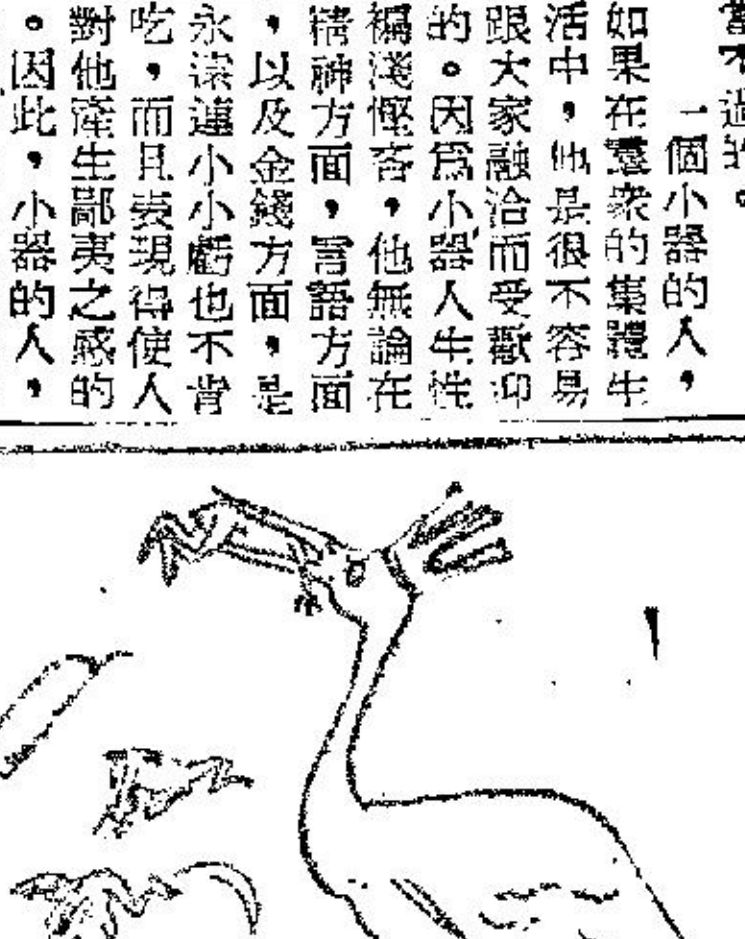 當不過的。
一個小器的人，
如果在羣衆的集體生
活中，他是很不容易
跟大家融洽而受歡迎
的。因爲小器人生性
褊淺慳吝，他無論在
精神方面，言語方面
，以及金錢方面，是
永遠連小小虧也不肯
吃，而且表現得使人
對他產生鄙夷之感的
。因此，小器的人，